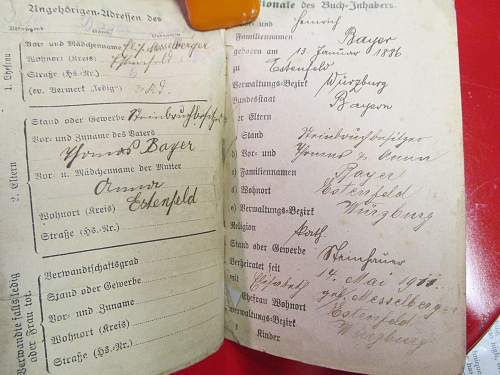 Angehörigen-Adressen des
1. Ehefrau
Vor- und Mädchenname Elis. Messelberger
Wohnort (Kreis) Estenfeld
Straße (Hs.-Nr.)
(ev. Vermerk „ledig“)
2. Eltern
Stand oder Gewerbe Steinbruchbesitzer
Vor- und Zuname des Vaters
Thomas Bayer
Vor- u. Mädchenname der Mutter
Anna
Wohnort (Kreis) Estenfeld
Straße (Hs.-Nr.)
Verwandte falls ledig
oder Frau tot.
Verwandtschaftsgrad
Stand oder Gewerbe
Vor- und Zuname
Wohnort (Kreis)
Straße (Hs.-Nr.)
ionale des Buch-Inhabers.
und Heinrich
Familiennamen Bayer
geboren am 13. Januar 1886
zu Estenfeld
Verwaltungs-Bezirk Würzburg
Bundesstaat Bayern
er Eltern
Stand Steinbruchbesitzer
b) Vor- und Thomas & Anna
c) Familiennamen Bayer
d) Wohnort Estenfeld
e) Verwaltungs-Bezirk Würzburg
Religion kath.
Stand oder Gewerbe Steinhauer
Verheiratet seit 14. Mai 1911.
mit Elisabeth geb. Messelberger
Ehefrau Wohnort Estenfeld
Verwaltungs-Bezirk Würzburg
Kinder